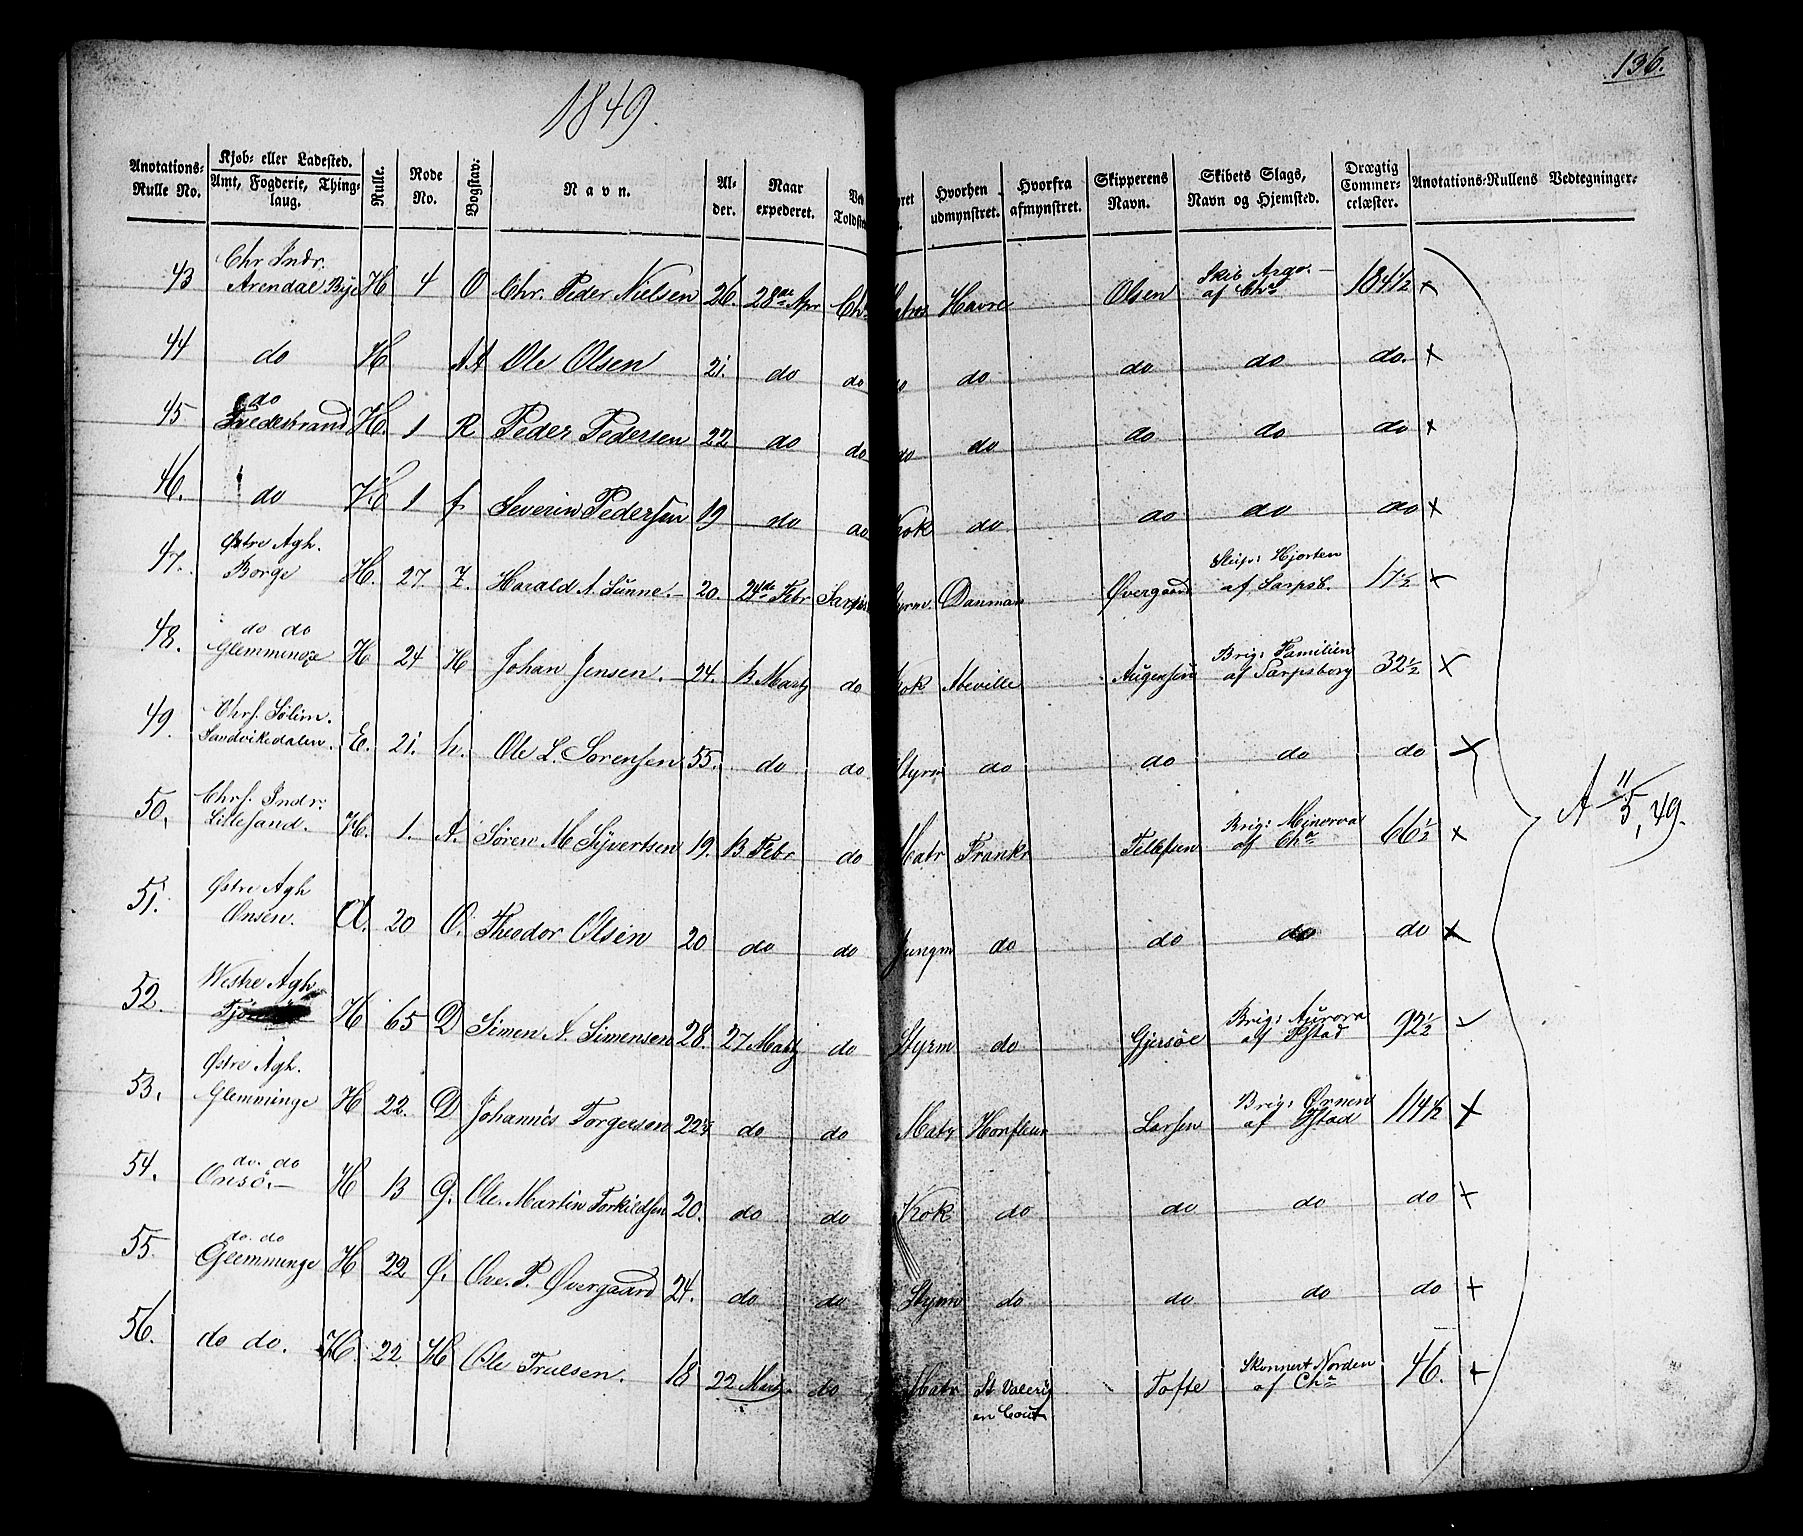 136.
1849.
Anotations-Rulle No. | Kjøb- eller Ladested. Amt, Fogderie, Thinglaug. | Rulle. | Rode No. | Bogstav. | Navn. | Alder. | Naar expederet. | Ved Toldste | yret | Hvorhen udmynstret. | Hvorfra afmynstret. | Skipperens Navn. | Skibets Slags, Navn og Hjemsted. | Drægtig Commercelæster. | Anotations-Rullens Vedtegninger.
43 | Chr Indr. Arendal Bye | H | 4 | O | Chr. Peder Nielsen | 26. | 28de Apr | Ch | atros | Havre | | Olsen | Skib Argo. af Cha | 184½ | x
44 | do | H | | AA | Ole Olsen | 21. | do | do | do | do | | do | do | do. | x
45 | do | H. | 1 | R | Peder Pedersen | 22 | do | do | do | do | | do | do | do | x
46. | do | H | 1 | f. | Severin Pedersen | 19 | do | do | Kok | do | | do | do | do | x
47. | Østre Agh. Borge | H. | 27. | Z. | Harald A. Sunne. | 20. | 24de Febr | Sarps | tyrm. | Danmar | | Øvergaard | Hjorten af Sarpsb. | 17½ | x
48. | do do Glemminge | H | 24 | H | Johan Jensen. | 24. | 13 Martz | do | Kok | Abeville | | | Brig: Familien af Sarpsborg | 32½ | x
49. | Sandvikedalen. | E. | 21. | h. | Ole L. Sørensen | 55. | do | do | Styrm | do | | do | do | do | x
50. | Chrs. Indr. Lillesand. | H. | 1. | A. | Søren M Syvertsen | 19. | 13 Febr | do | Matr | Frankr | | Tellefsen | Brig: Minerva af Cha | 66½ | x
51. | Østre Agh Onsøn. | A. | 20 | O. | Theodor Olsen | 20 | do | do | Jungm | do | | do | do | do | x
52. | Westre Agh | H | 65 | D | Simen A. Simensen | 28. | 27 Martz | do | Styrm | do | | Gjersøe | Brig: Aurora af Fstad | 92½
53. | Østre Agh. Glemminge | H | 22. | D | Johannes Torgersen | 22½ | do | do | Matr | Honfleur | | Larsen | Brig: Ørnen af Fstad | 114½ | x
54. | do. do Onsø. | H | 13 | G. | Ole Martin Torkildsen | 20. | do | do | Kok | do | | do | do | do | x
55. | do. do Glemminge | H | 22 | Ø. | Ove. P. Øvergaard | 24. | do | do | Styrm | do | | do | do | do | x
56. | do do. | H. | 22. | H | Ole Trulsen. | 18 | 22 Martz | do | Matr | St Valery en Caut | | Tofte | Skonnert Norden af Cha | 46. | x
A 11/5, 49.